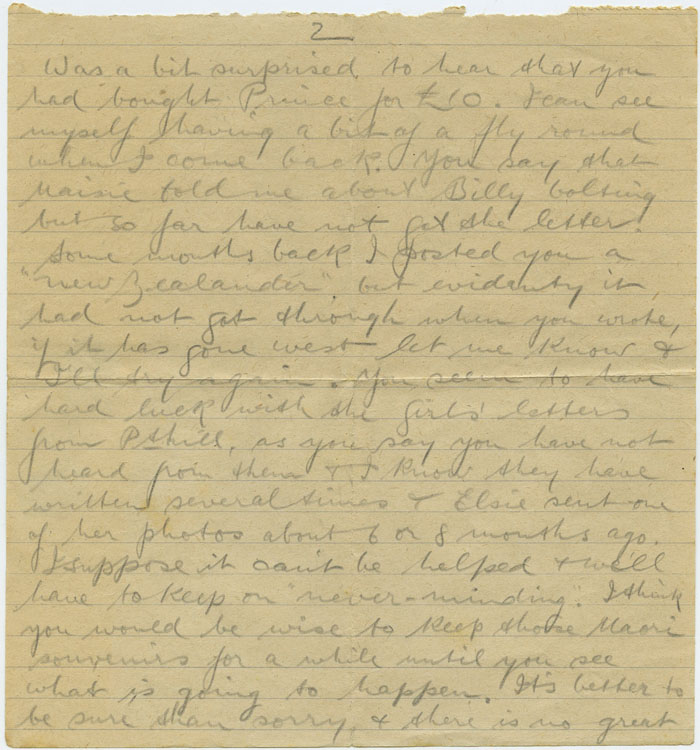 2
Was a bit surprised to hear that you
had bought Prince for £10. I can see
myself having a bit of a fly round
when I come back. You say that
Maisie told me about Billy bolting
but so far have not got the letter.
Some months back I posted you a
"New Zealander" but evidantly it
had not got through when you wrote,
if it has gone west let me know &
I'll try again. You seem to have
hard luck with the girls' letters
from as you say you have not
heard from them & I know they have
written several times & Elsie sent one
of her photos about 6 or 8 months ago.
I suppose it can't be helped & we'll
have to keep on "never-minding". I think
you would be wise to keep those Maori
souvenirs for a while until you see
what is going to happen. It's better to
be sure than sorry, & there is no great